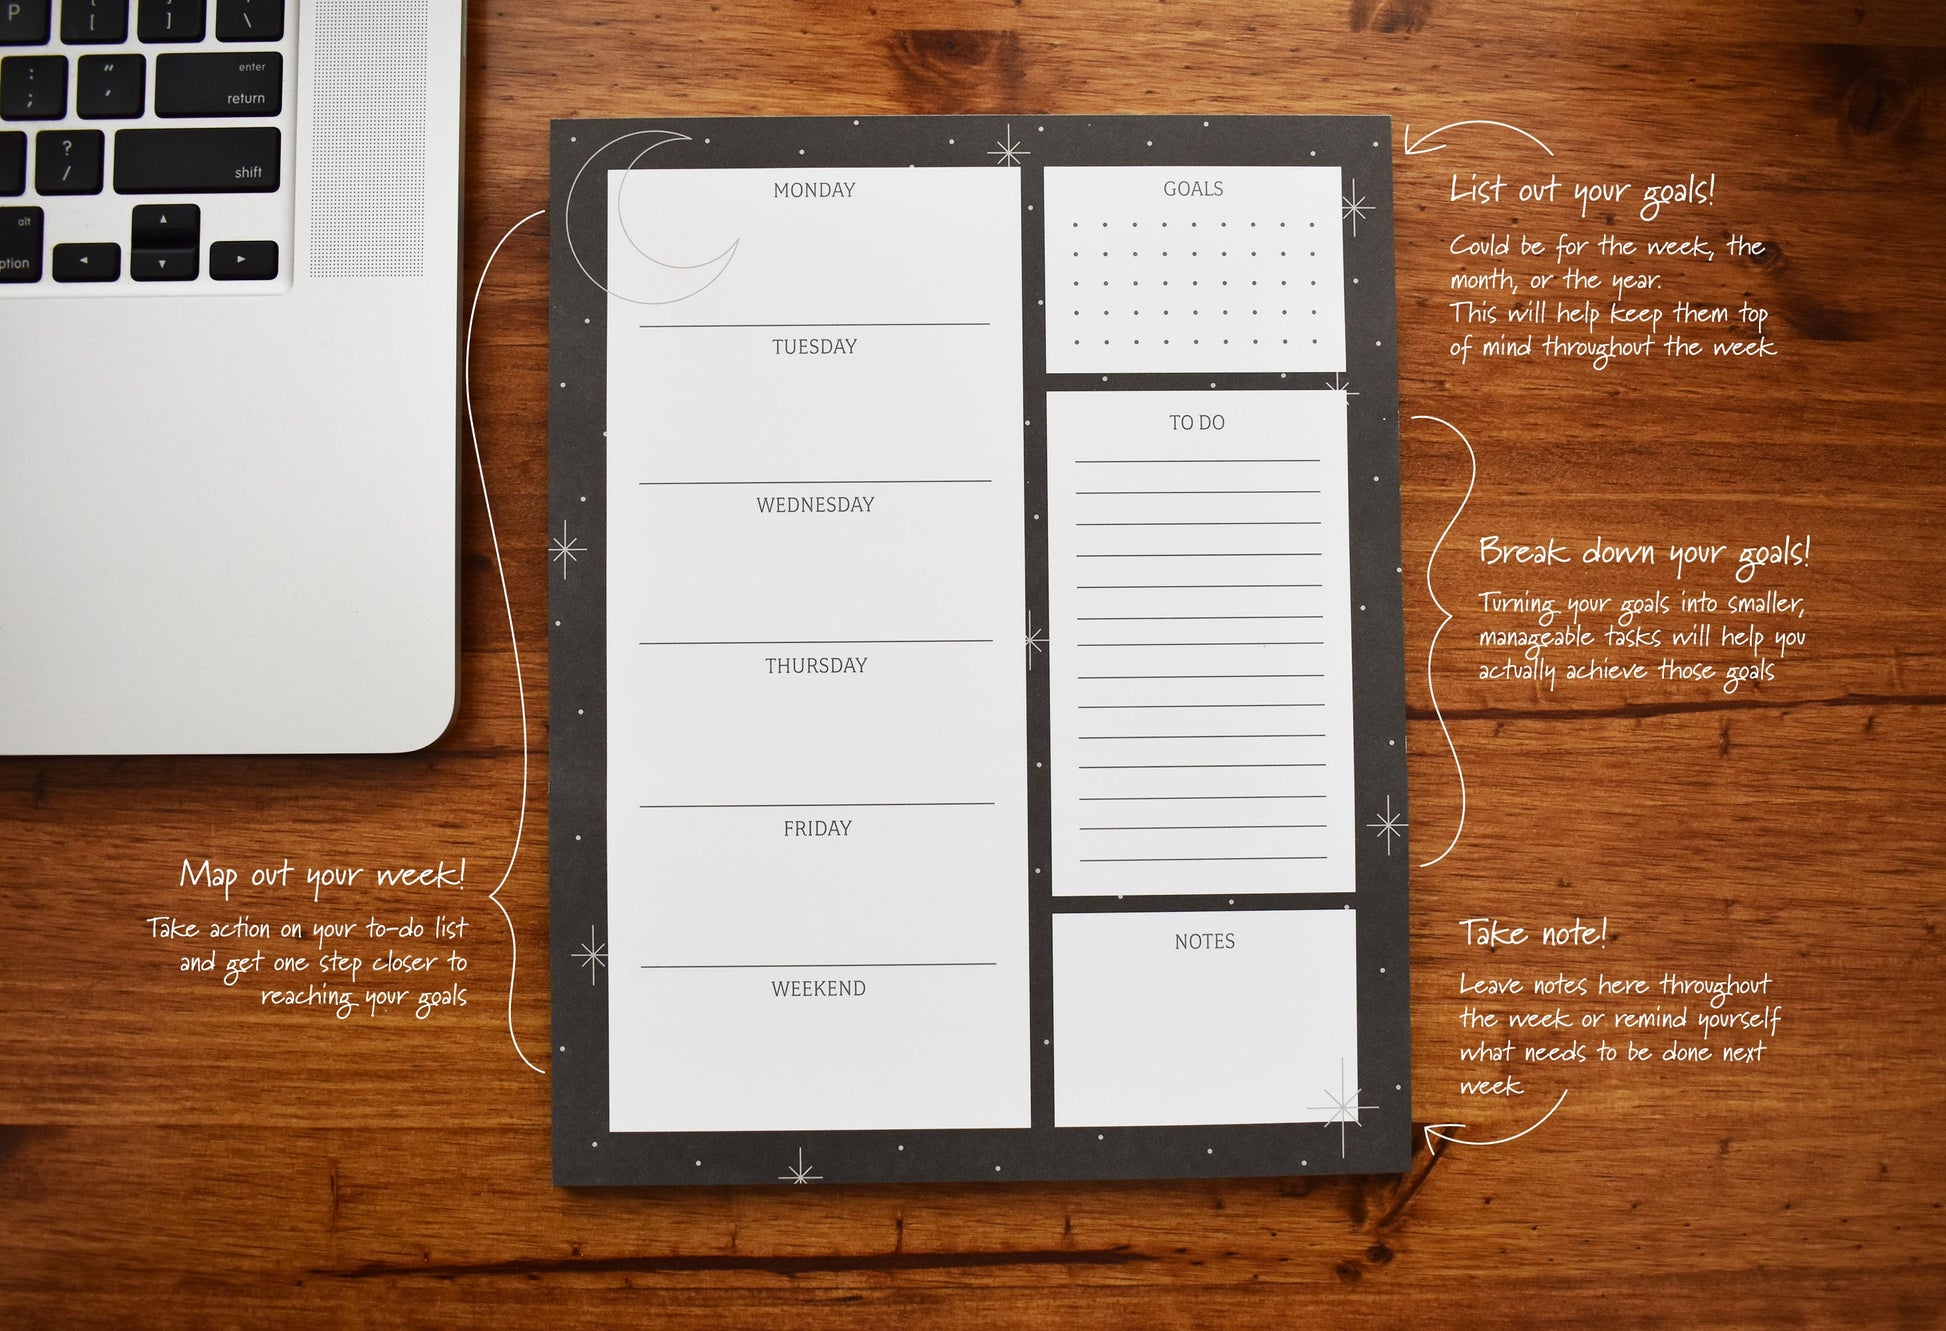 P
{
[
}
]
|
\
:
;
"
'
enter
return
?
/
shift
alt
ption
MONDAY
TUESDAY
WEDNESDAY
THURSDAY
FRIDAY
WEEKEND
GOALS
TO DO
NOTES
Map out your week!
Take action on your to-do list
and get one step closer to
reaching your goals
List out your goals!
Could be for the week, the
month, or the year.
This will help keep them top
of mind throughout the week
Break down your goals!
Turning your goals into smaller,
manageable tasks will help you
actually achieve those goals
Take note!
Leave notes here throughout
the week or remind yourself
what needs to be done next
week